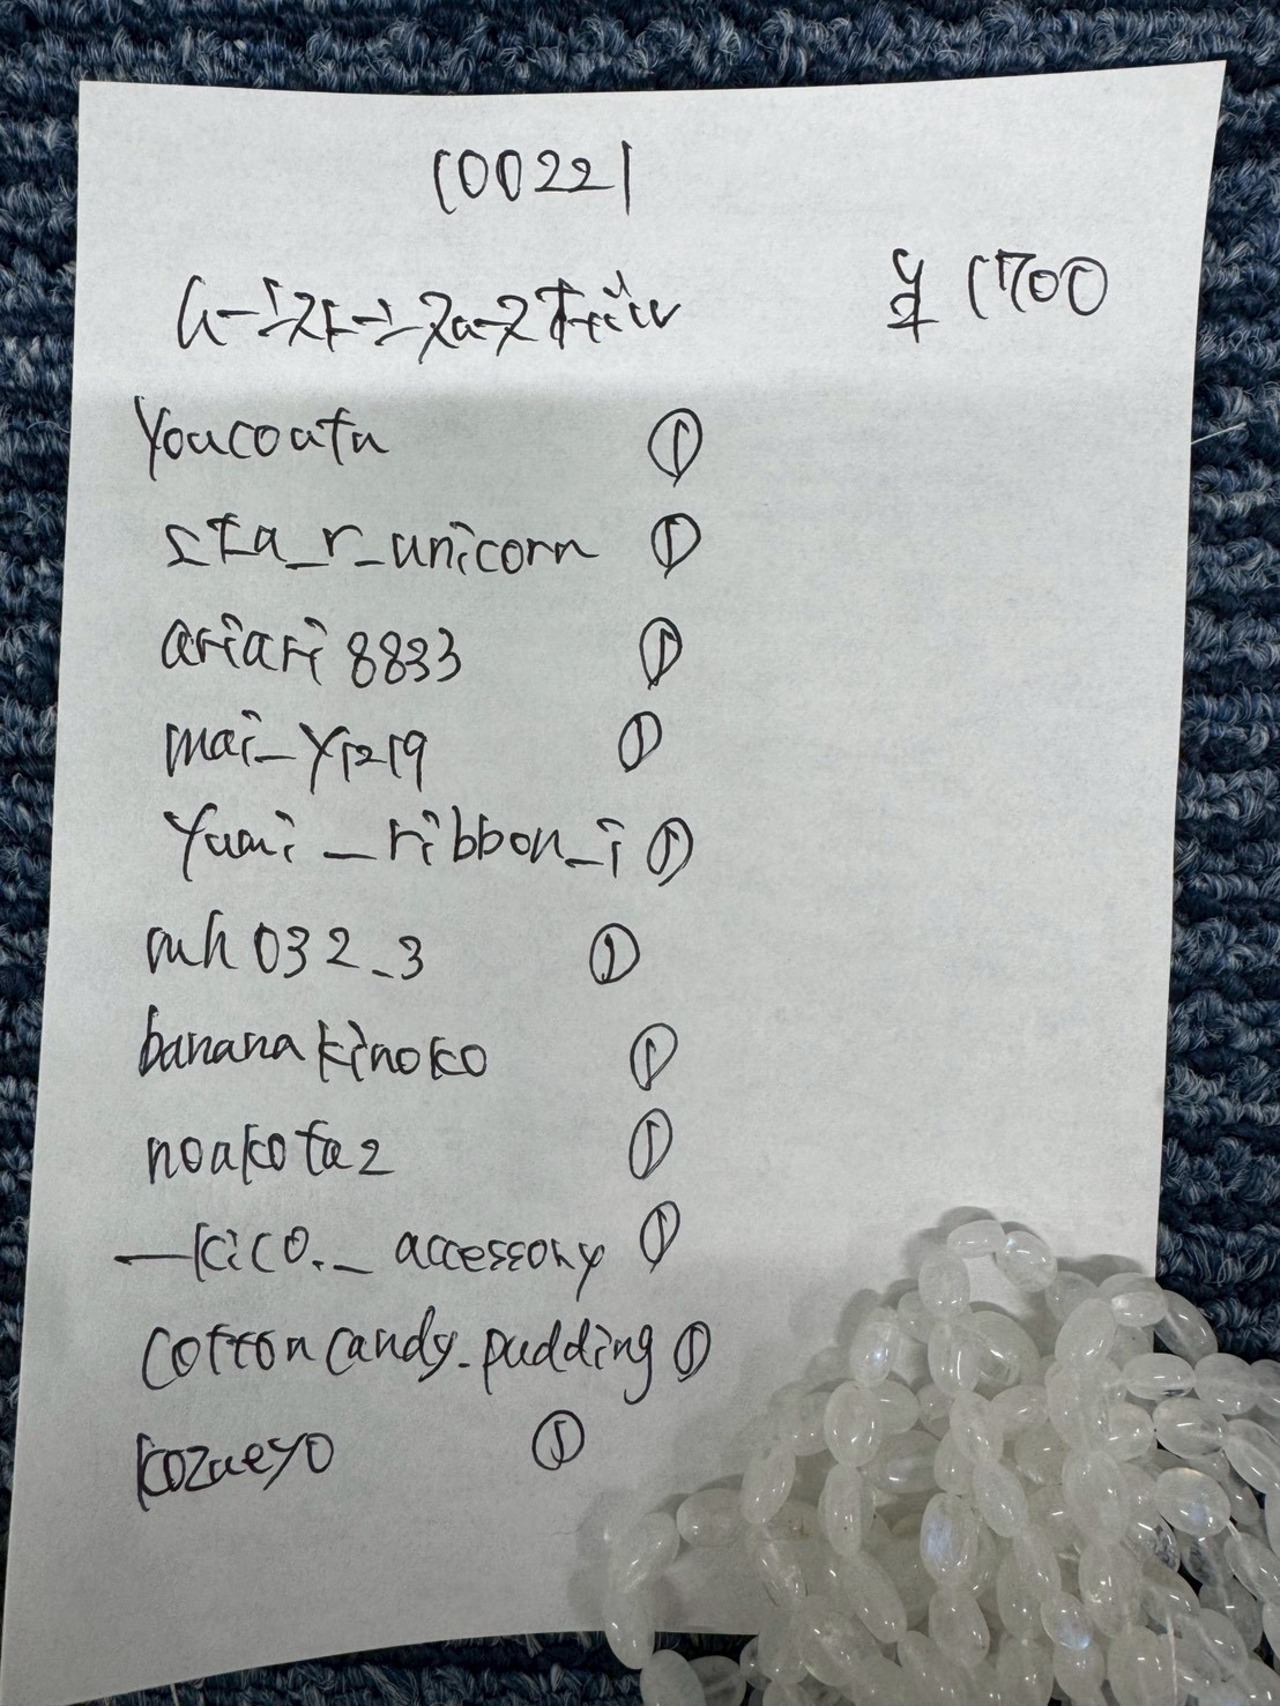 100221
¥1700
youcoata
sta_r_unicorn ①
ariari8833 ①
mai_y1219 ①
yumi_ribbon_i ①
mh032_3 ①
bananakinoko ①
noakota2 ①
_kico._accessory ①
cottoncandy_pudding ①
kozueyo ①